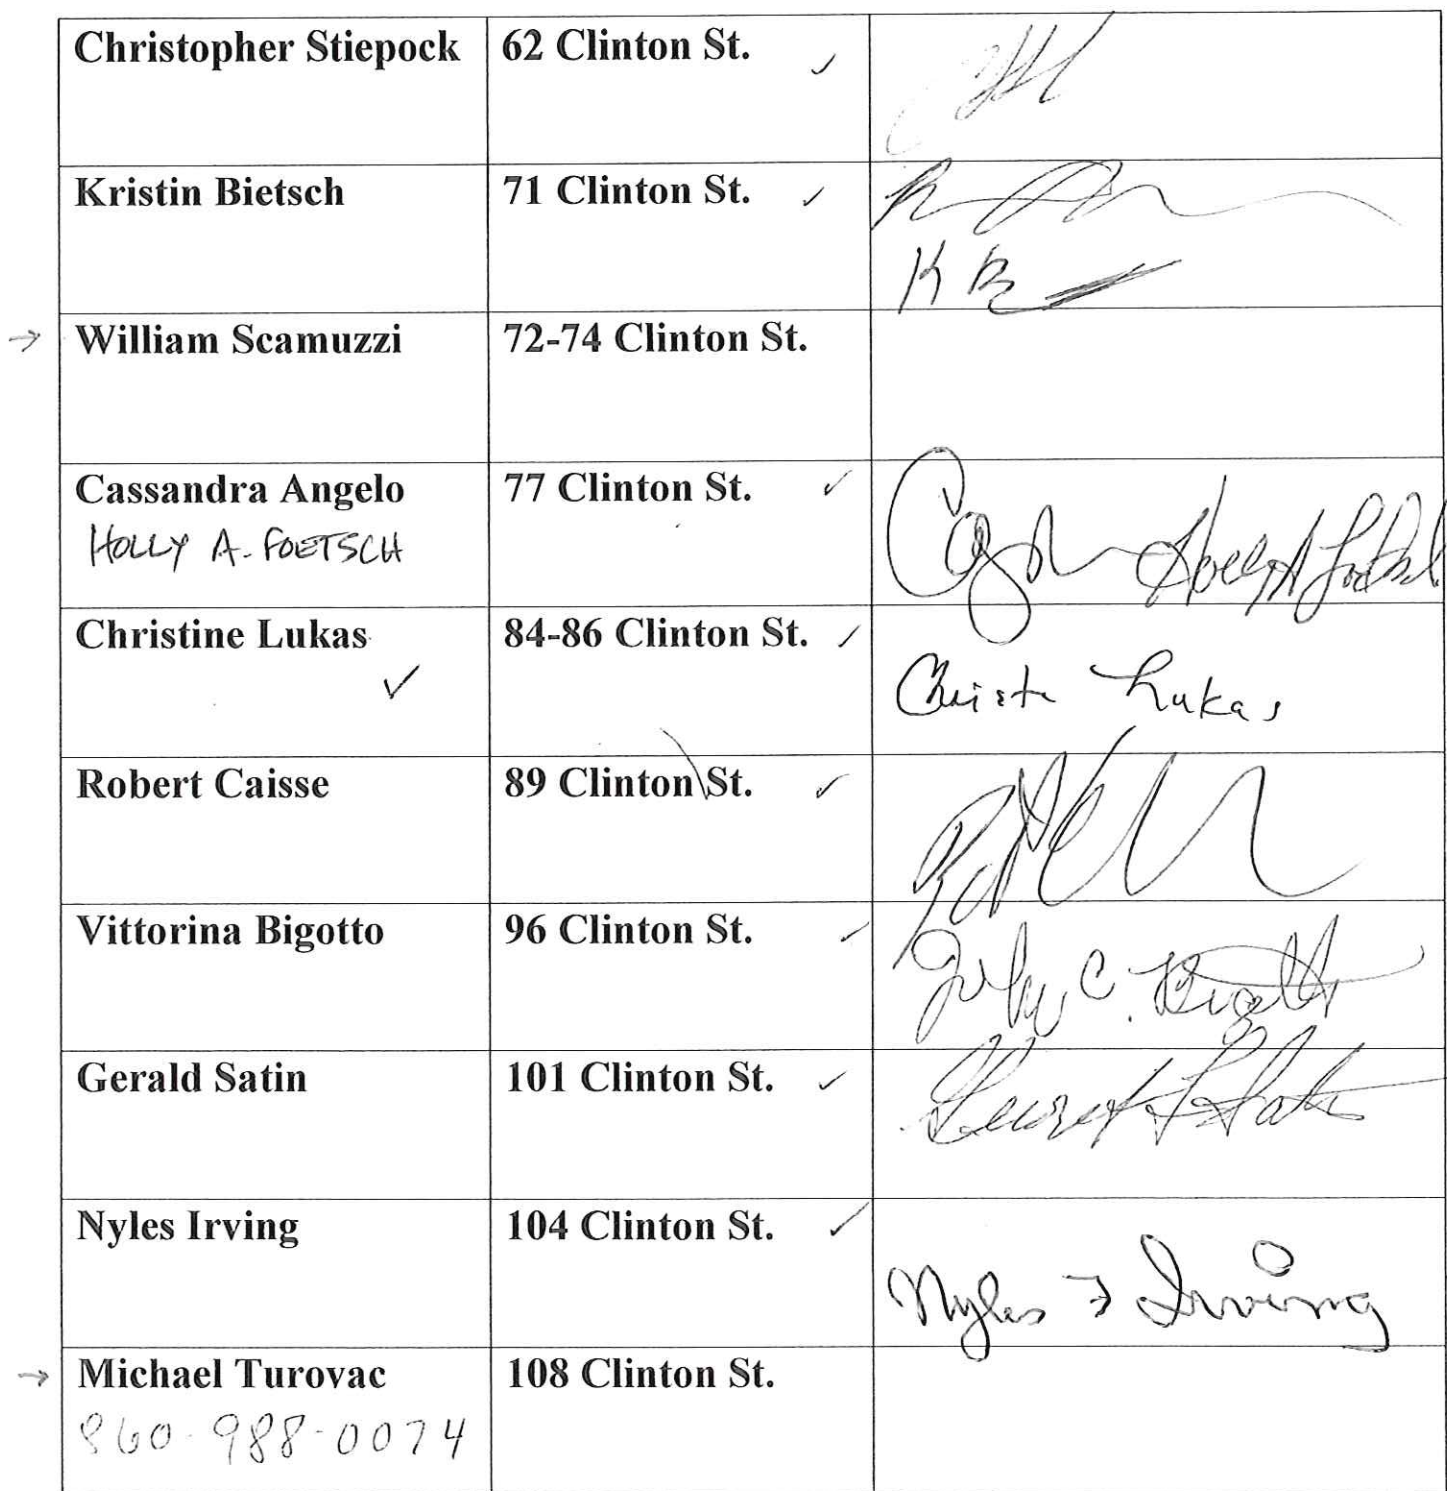 Christopher Stiepock 62 Clinton St. ✓
Kristin Bietsch 71 Clinton St. ✓
K B
→ William Scamuzzi 72-74 Clinton St.
Cassandra Angelo 77 Clinton St. ✓
HOLLY A. FOETSCH
Christine Lukas 84-86 Clinton St. ✓
✓ Lukas
Robert Caisse 89 Clinton St. ✓
Vittorina Bigotto 96 Clinton St. ✓
Gerald Satin 101 Clinton St. ✓
Nyles Irving 104 Clinton St. ✓
Nyles F Irving
→ Michael Turovac 108 Clinton St.
860-988-0074